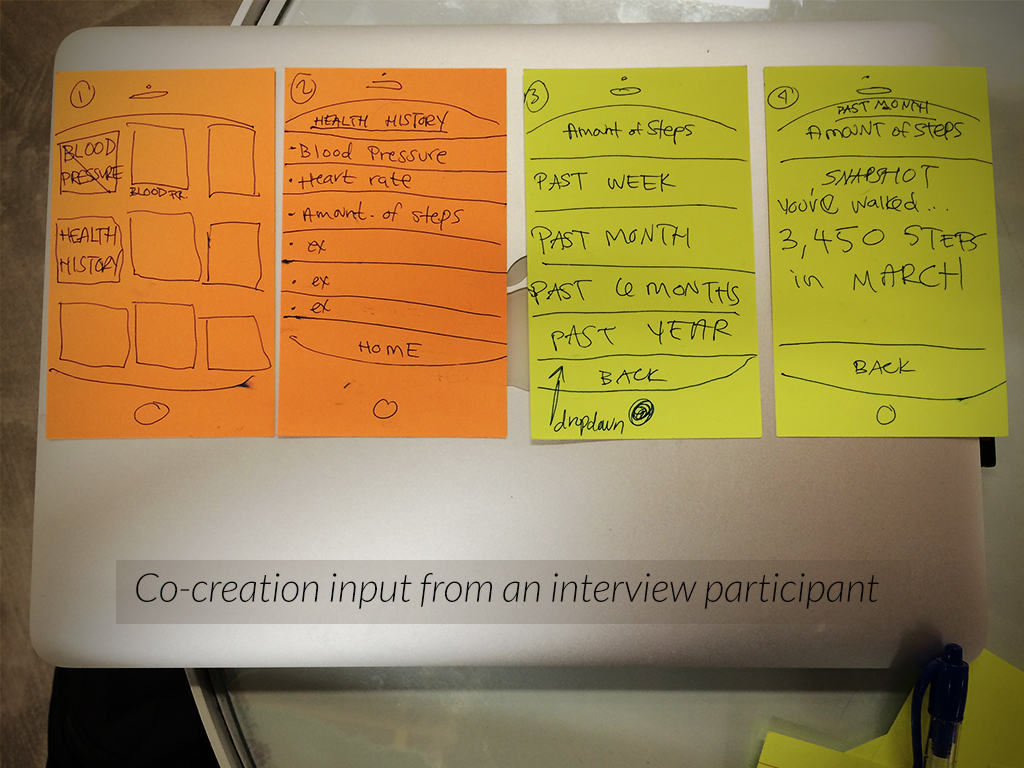 1
BLOOD
PRESSURE
BLOOD PR.
HEALTH
HISTORY
2
HEALTH HISTORY
- Blood Pressure
• Heart rate
- Amount of steps
• ex
• ex
• ex
HOME
3
Amount of Steps
PAST WEEK
PAST MONTH
PAST 6 MONTHS
PAST YEAR
BACK
dropdown
4
PAST MONTH
AMOUNT OF STEPS
SNAPSHOT
you've walked...
3,450 STEPS
in MARCH
BACK
Co-creation input from an interview participant